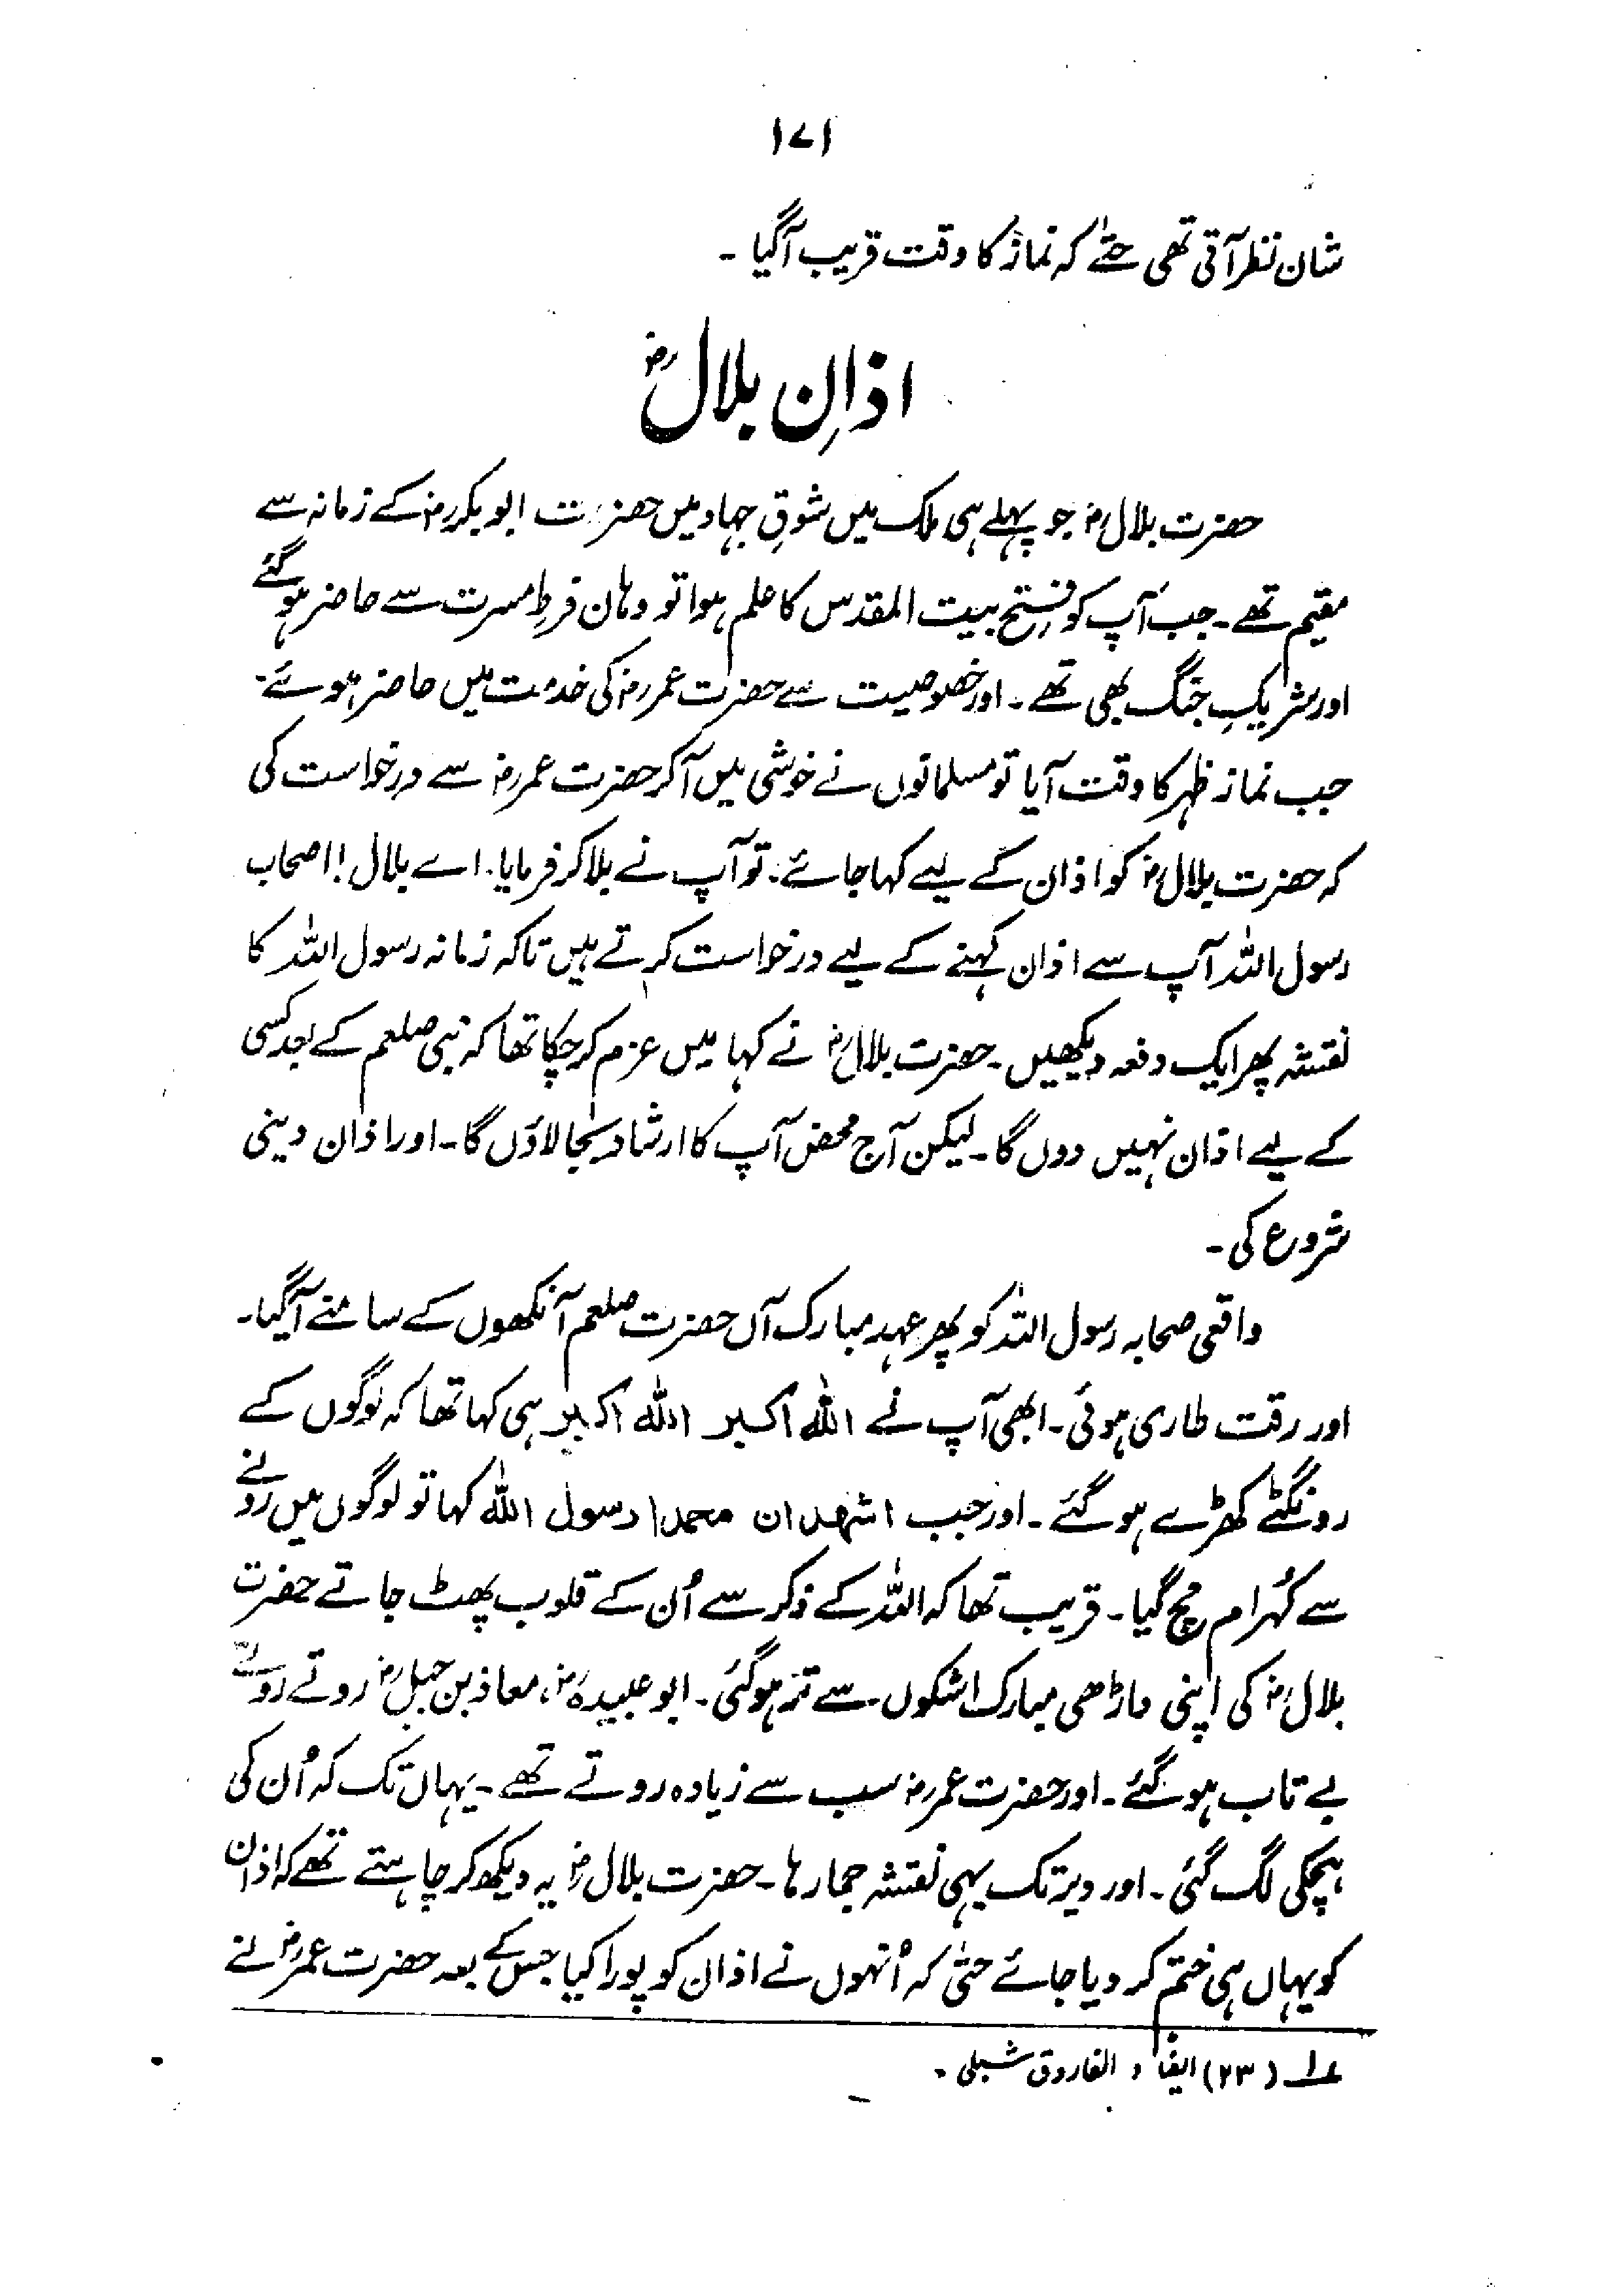 ۱۷۱
شان نظر آتی تھی حتےٰ کہ نماز کا وقت قریب آگیا ۔
اذانِ بلالؓ
حضرت بلالؓ جو پہلے ہی ملک میں شوقِ جہاد میں حضرت ابوبکرؓ کے زمانہ سے
مقیم تھے ۔ جب آپ کو فتح بیت المقدس کا علم ہوا تو وہاں فرطِ مسرت سے حاضر ہو گئے
اور شریکِ جنگ بھی تھے ۔ اور خصوصیت سے حضرت عمرؓ کی خدمت میں حاضر ہوئے ۔
جب نماز ظہر کا وقت آیا تو مسلمانوں نے خوشی میں آکر حضرت عمرؓ سے درخواست کی
کہ حضرت بلالؓ کو اذان کے لیے کہا جائے ۔ تو آپ نے بلا کر فرمایا ۔ اے بلال ! اصحاب
رسول اللہ آپ سے اذان کہنے کے لیے درخواست کرتے ہیں تاکہ زمانہ رسول اللہ کا
نقشہ پھر ایک دفعہ دیکھیں ۔ حضرت بلالؓ نے کہا میں عزم کر چکا تھا کہ نبی صلعم کے بعد کسی
کے لیے اذان نہیں دوں گا ۔ لیکن آج محض آپ کا ارشاد بجا لاؤں گا ۔ اور اذان دینی
شروع کی ۔
واقعی صحابہ رسول اللہ کو پھر عہد مبارک آں حضرت صلعم آنکھوں کے سامنے آگیا ۔
اور رقت طاری ہوئی ۔ ابھی آپ نے اللہ اکبر اللہ اکبر ہی کہا تھا کہ لوگوں کے
رونگٹے کھڑے ہو گئے ۔ اور جب اشھدان محمدا رسول اللہ کہا تو لوگوں میں رونے
سے کُہرام مچ گیا ۔ قریب تھا کہ اللہ کے ذکر سے اُن کے قلوب پھٹ جاتے حضرت
بلالؓ کی اپنی داڑھی مبارک اشکوں سے تر ہوگئی ۔ ابوعبیدہؓ، معاذ بن جبلؓ روتے روتے
بے تاب ہو گئے ۔ اور حضرت عمرؓ سب سے زیادہ روتے تھے ۔ یہاں تک کہ اُن کی
ہچکی لگ گئی ۔ اور دیر تک یہی نقشہ جما رہا ۔ حضرت بلالؓ یہ دیکھ کر چاہتے تھے کہ اذان
کو یہاں ہی ختم کر دیا جائے حتیٰ کہ اُنہوں نے اذان کو پورا کیا جس کے بعد حضرت عمرؓ نے
؎۱ (۲۳) ایضاً و الفاروق شبلی ۔